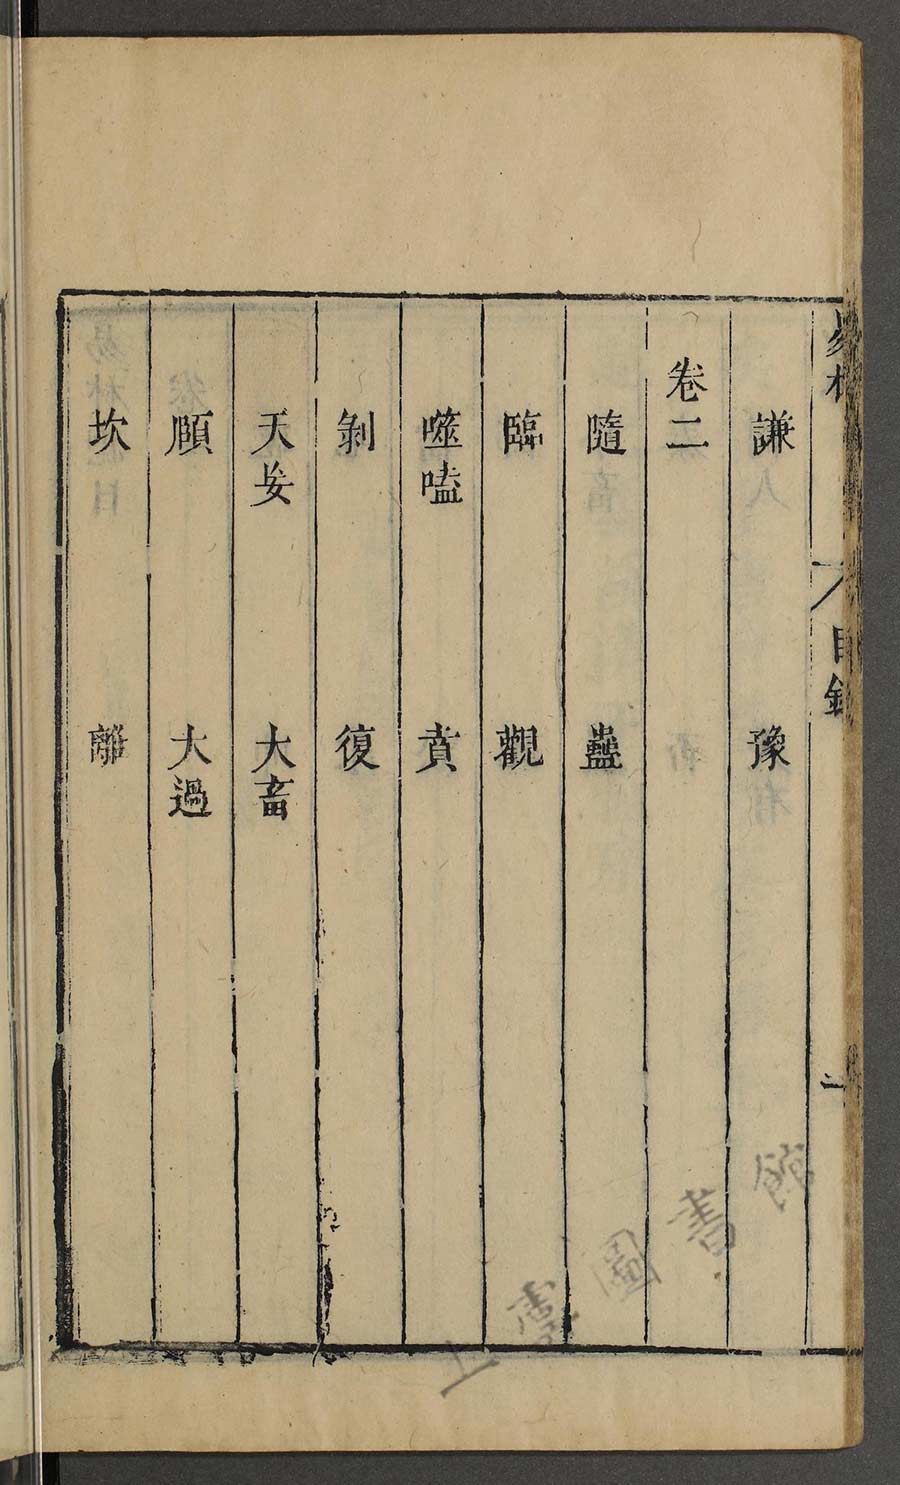 易林 目錄 二
謙 豫
卷二
隨 蠱
臨 觀
噬嗑 賁
剝 復
无妄 大畜
頤 大過
坎 離
上 圖書館